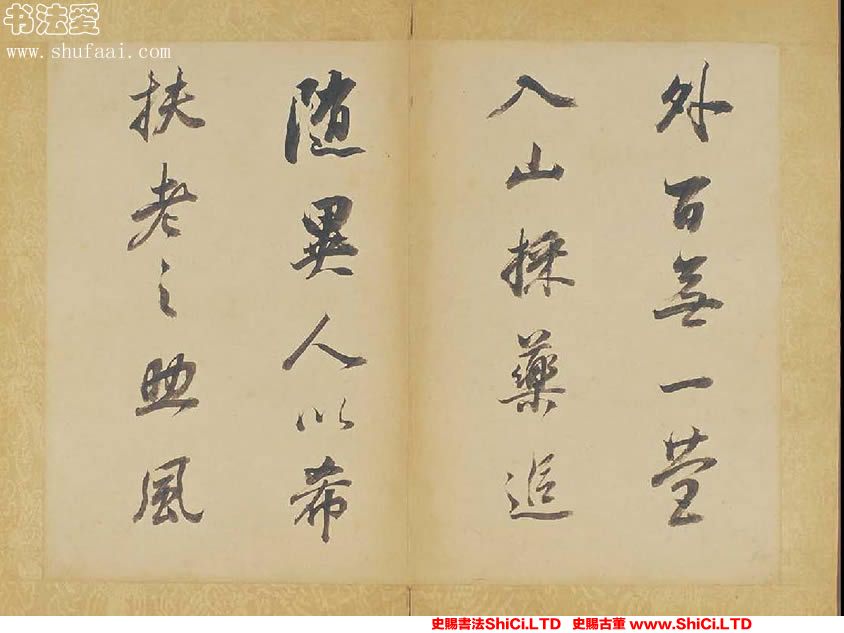 书法爱
www.shufaai.com
外百無一營
入山採藥追
随異人以希
扶老之助風
史賜書法ShiCi.LTD 史賜古董 www.ShiCi.LTD